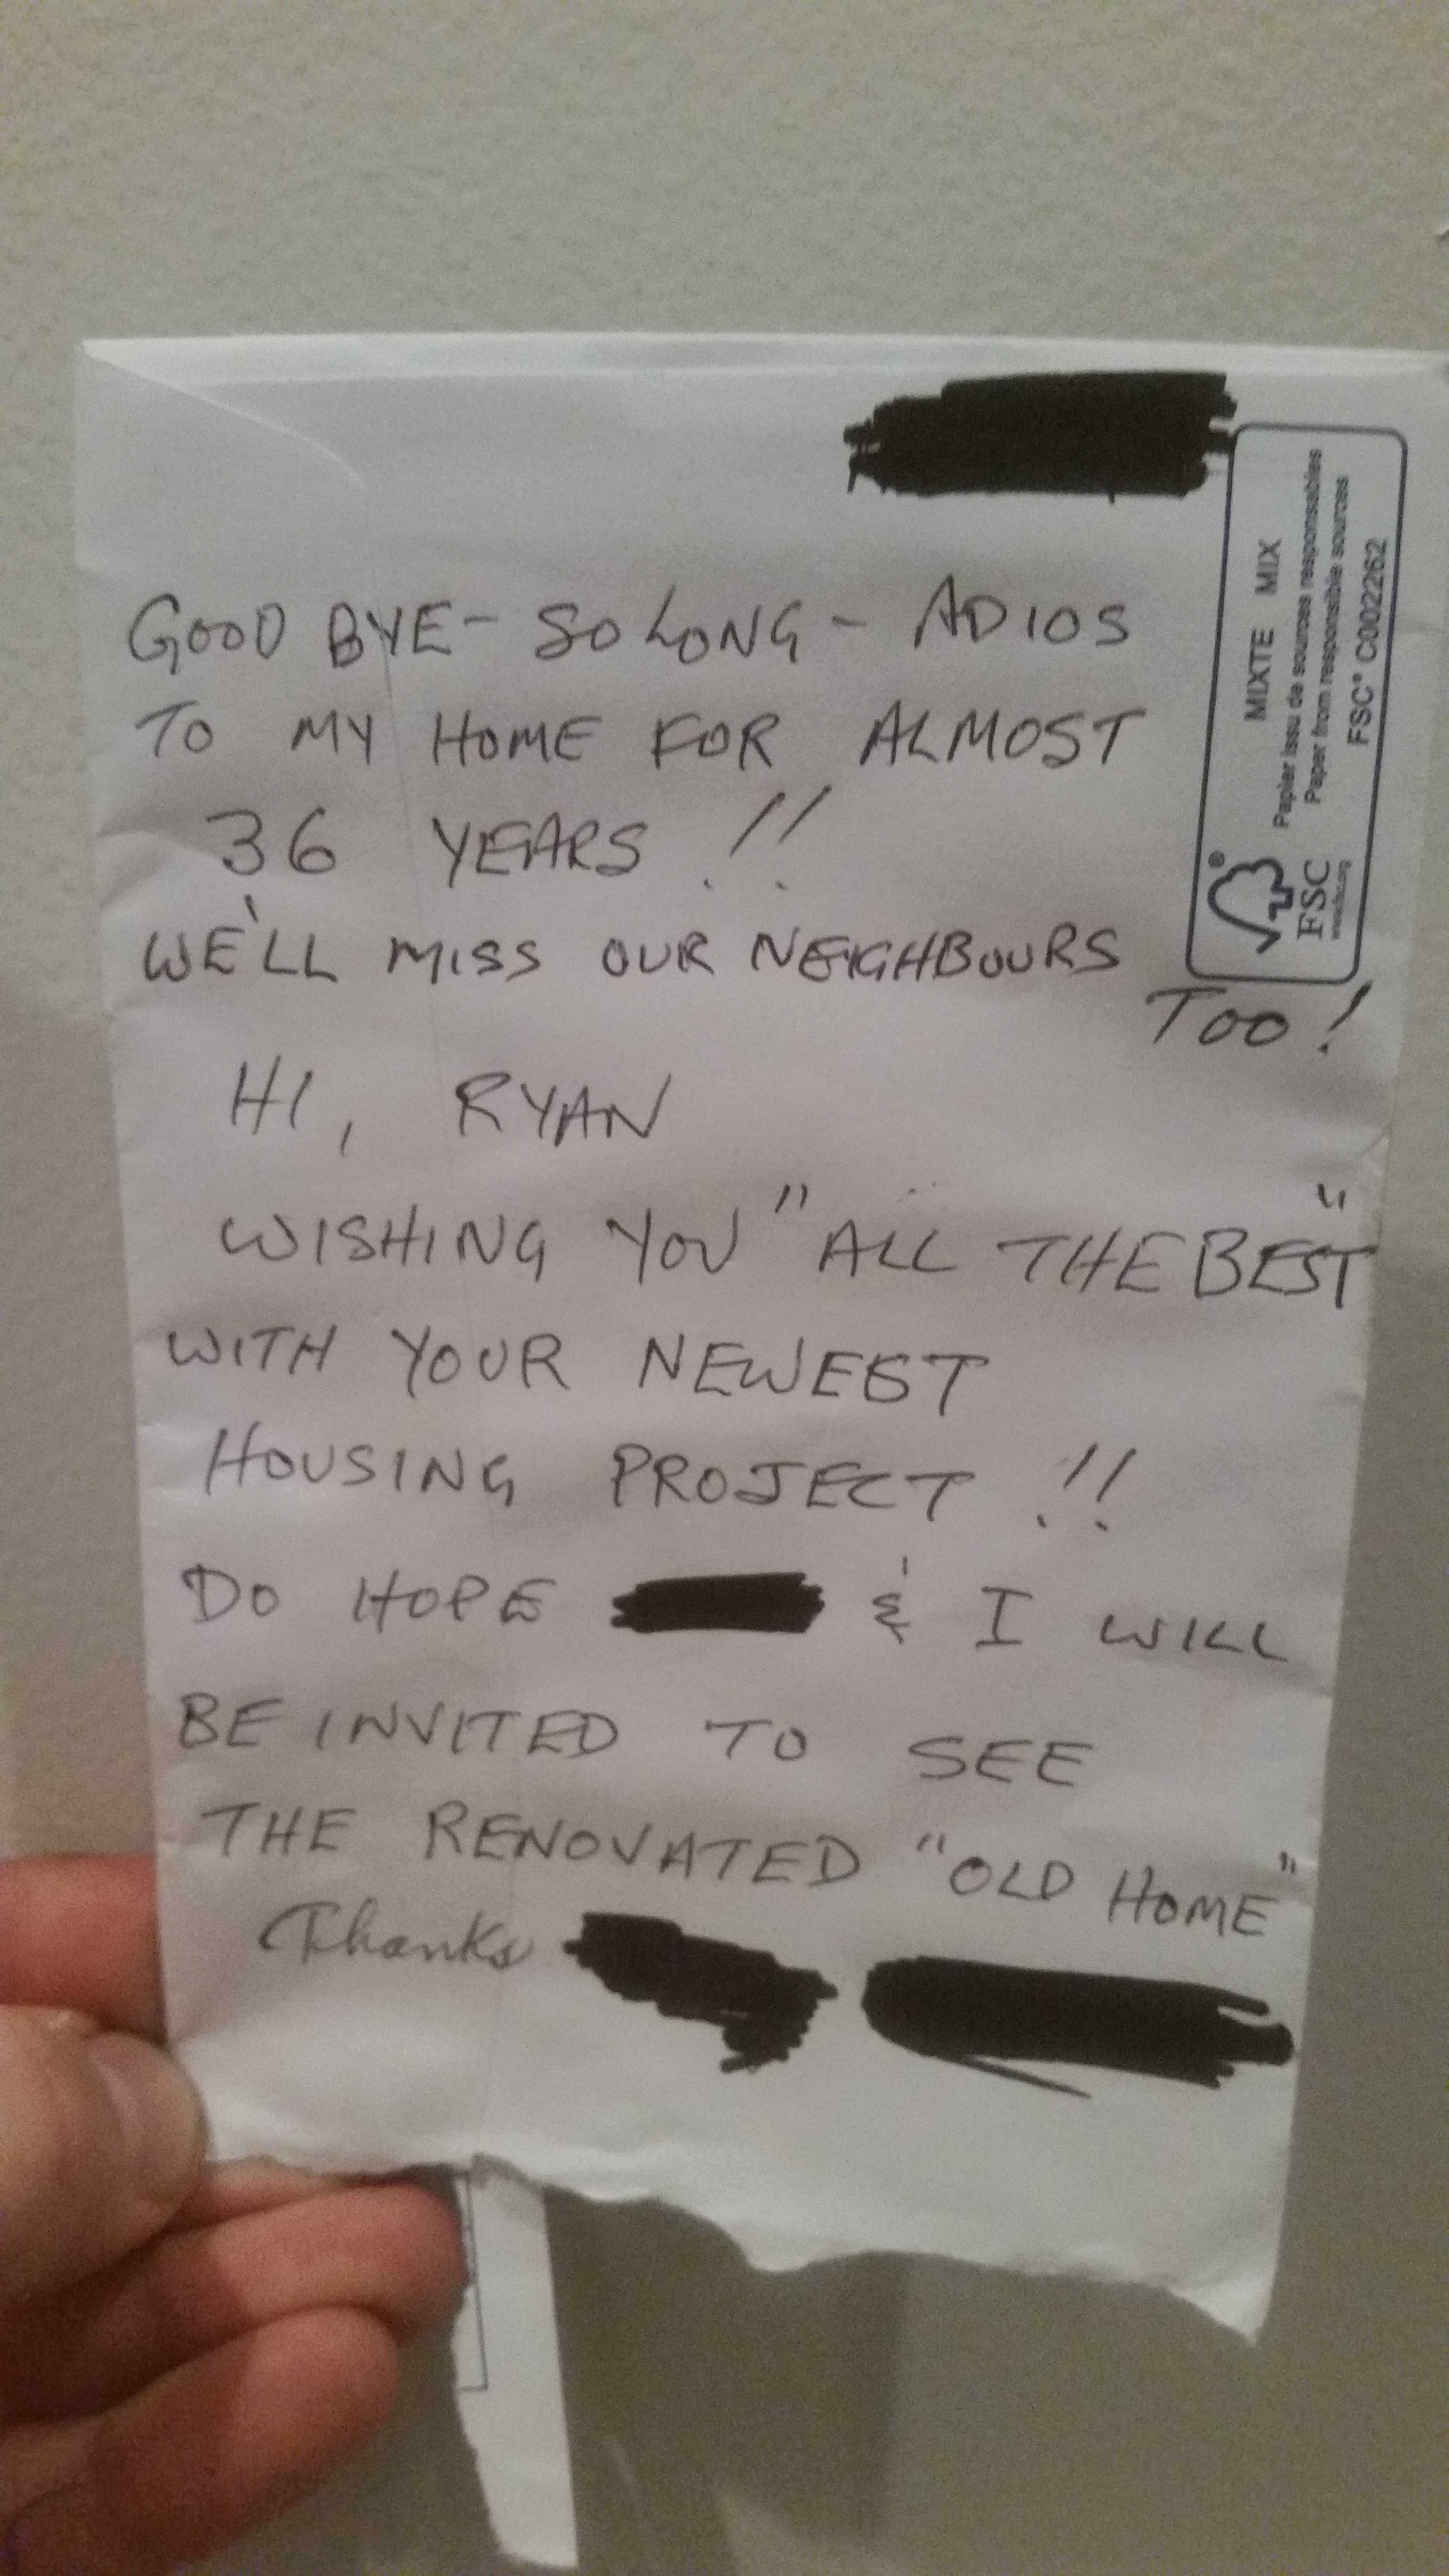 GOOD BYE - SO LONG - ADIOS
TO MY HOME FOR ALMOST
36 YEARS !!
WE'LL MISS OUR NEIGHBOURS
TOO!
HI, RYAN
WISHING YOU "ALL THE BEST"
WITH YOUR NEWEST
HOUSING PROJECT !!
DO HOPE & I WILL
BE INVITED TO SEE
THE RENOVATED "OLD HOME"
Thanks
MIXTE MIX
Papier issu de sources responsables
Paper from responsible sources
FSC® C002262
®
FSC
www.fsc.org